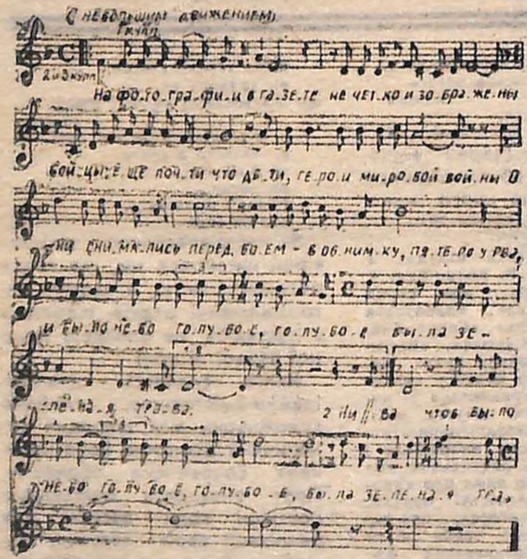 С НЕБОЛЬШИМ ДВИЖЕНИЕМ
1 КУПЛ
2 и 3 купл
На фо-то-гра-фи-и в га-зе-те не чет-ко и зо-бра-же-ны
бой-цы, е-ще поч-ти что де-ти, ге-ро-и ми-ро-вой вой-ны О
ни сни-ма-лись перед бо-ем - в об-ним-ку, пя-те-ро у рва,
и бы-ло не-бо го-лу-бо-е, го-лу-бо-е бы-ла зе-
ле-на-я тра-ва. 2 Ни ва чтоб бы-ло
не-бо го-лу-бо-е, го-лу-бо-е, бы-ла зе-ле-на-я тра-